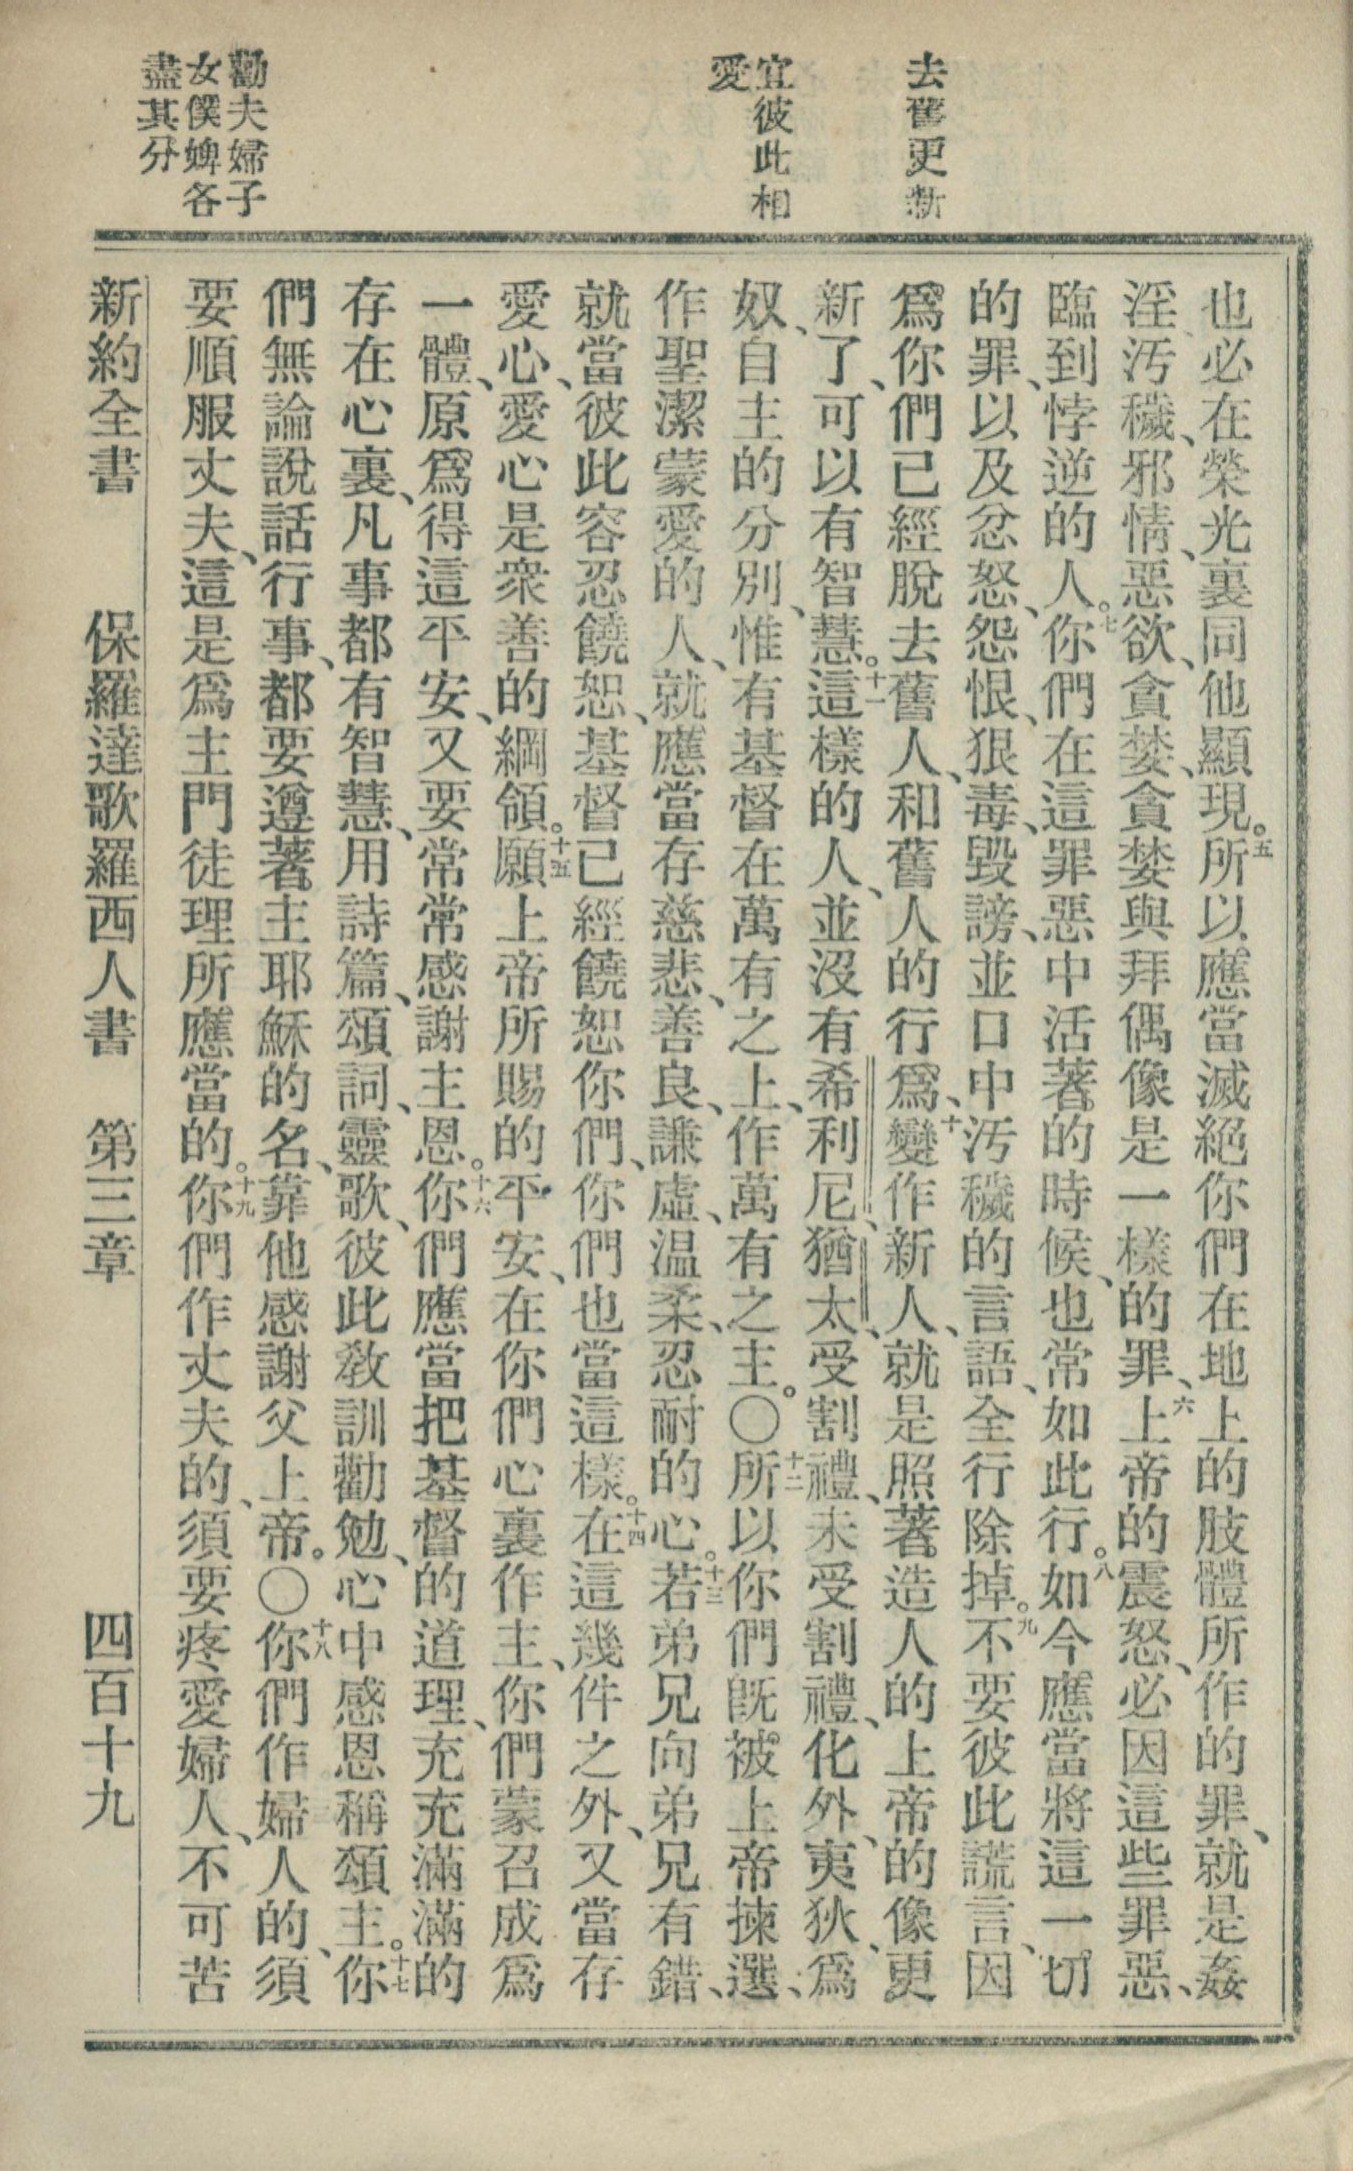 去舊更新
宜彼此相
愛
勸夫婦子
女僕婢各
盡其分
也必在榮光裏同他顯現。五所以應當滅絕你們在地上的肢體所作的罪、就是姦
淫汚穢、邪情、惡欲、貪婪、貪婪與拜偶像是一樣的罪、六上帝的震怒、必因這些罪惡、
臨到悖逆的人。七你們在這罪惡中活著的時候、也常如此行。八如今應當將這一切
的罪、以及忿怒、怨恨、狠毒、毀謗、並口中汚穢的言語、全行除掉。九不要彼此謊言、因
爲你們已經脫去舊人、和舊人的行爲、十變作新人、就是照著造人的上帝的像更
新了、可以有智慧。十一這樣的人、並沒有希利尼、猶太、受割禮、未受割禮、化外、夷狄、爲
奴、自主的分別、惟有基督在萬有之上、作萬有之主。〇十二所以你們既被上帝揀選、
作聖潔蒙愛的人、就應當存慈悲、善良、謙虛、温柔、忍耐的心。十三若弟兄向弟兄有錯、
就當彼此容忍饒恕、基督已經饒恕你們、你們也當這樣。十四在這幾件之外、又當存
愛心、愛心是衆善的綱領。十五願上帝所賜的平安、在你們心裏作主、你們蒙召成爲
一體、原爲得這平安、又要常常感謝主恩。十六你們應當把基督的道理、充充滿滿的
存在心裏、凡事都有智慧、用詩篇、頌詞、靈歌、彼此教訓勸勉、心中感恩稱頌主。十七你
們無論說話行事、都要遵著主耶穌的名、靠他感謝父上帝。〇十八你們作婦人的、須
要順服丈夫、這是爲主門徒理所應當的。十九你們作丈夫的、須要疼愛婦人、不可苦
新約全書　保羅達歌羅西人書　第三章　四百十九